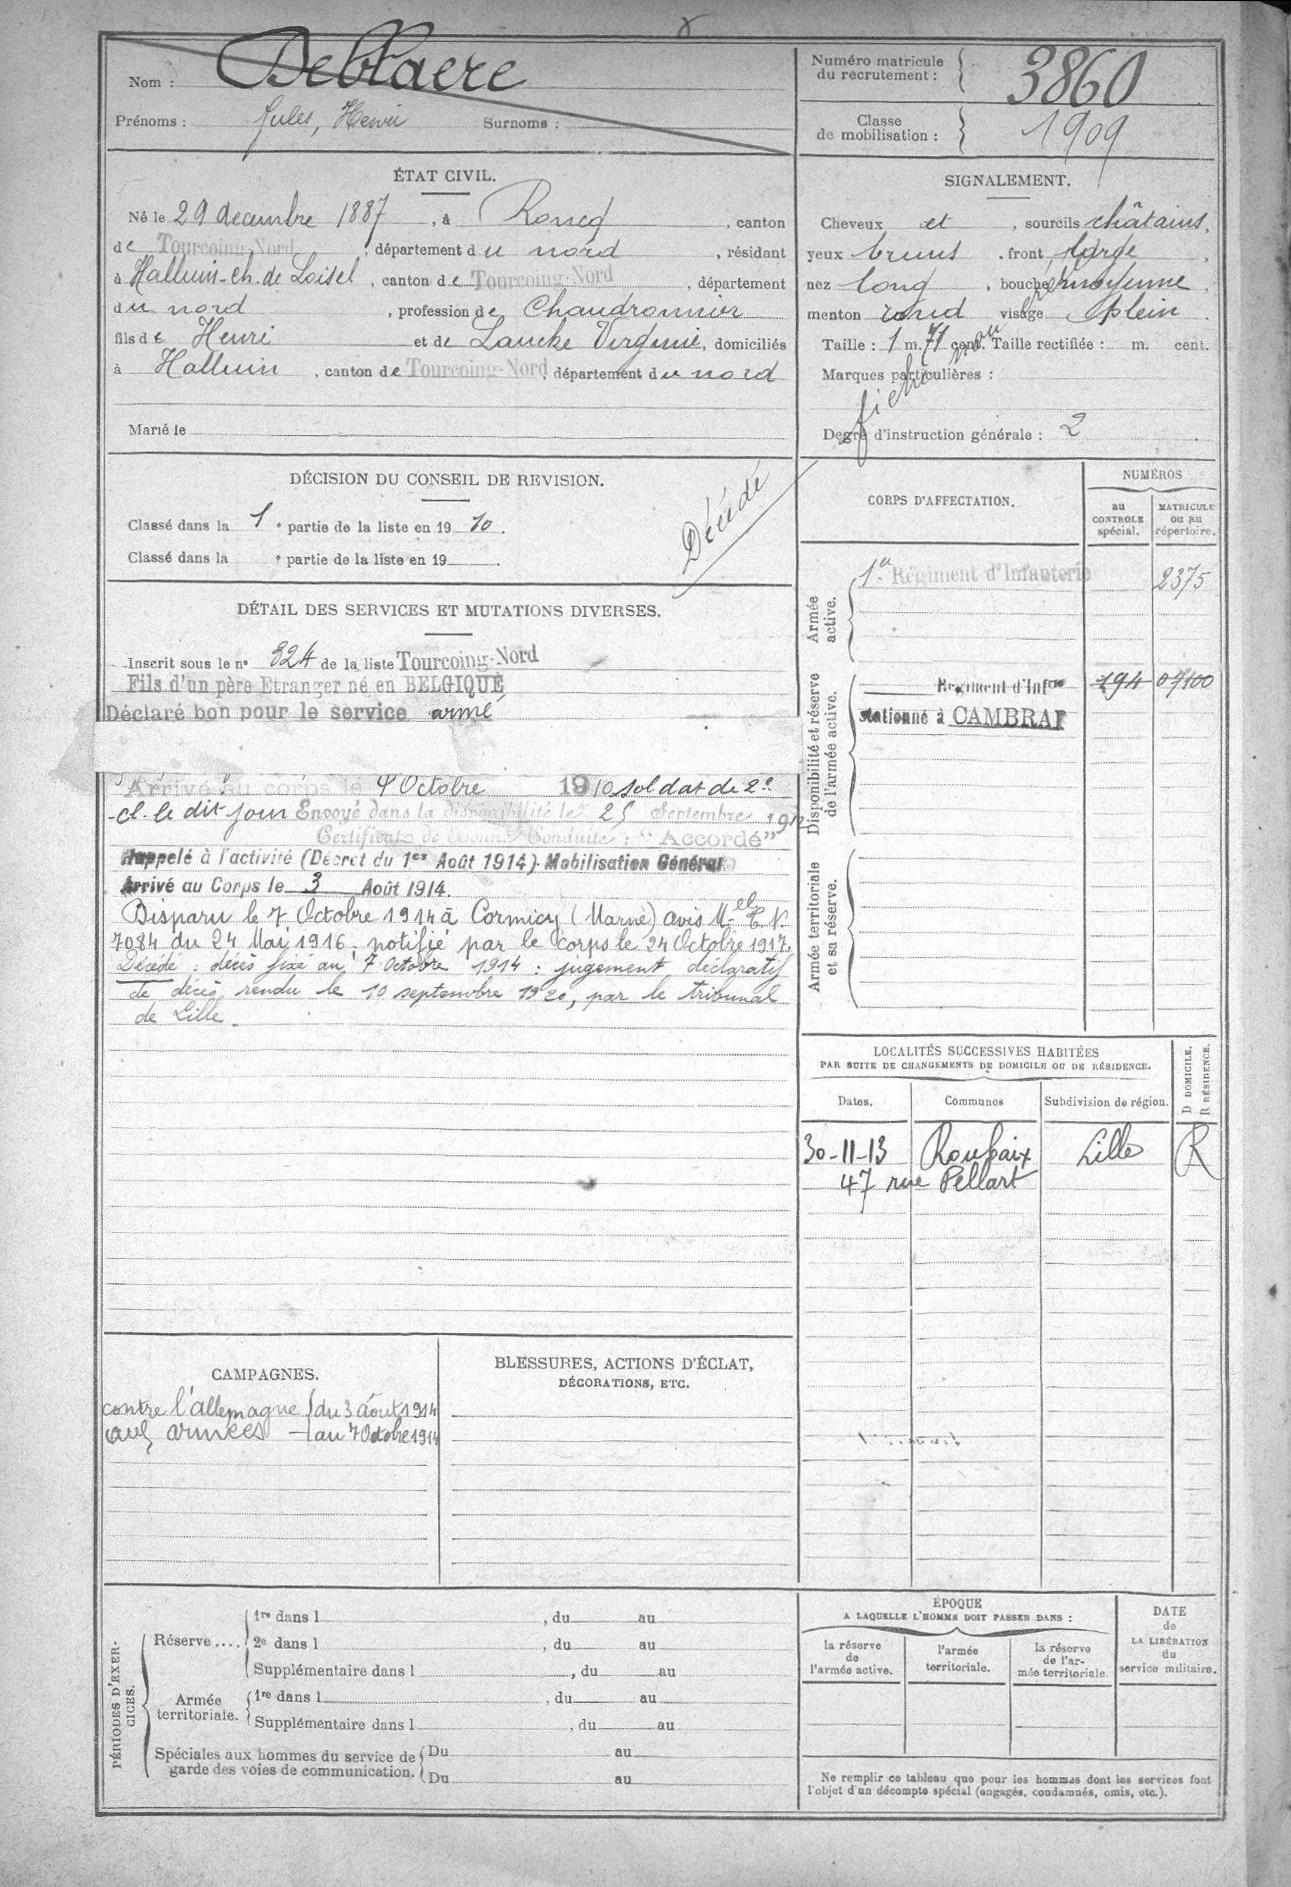 Nom : Deblaere
Prénoms : Jules, Henri Surnoms :
Numéro matricule
du recrutement : 3860
Classe
de mobilisation : 1909
ÉTAT CIVIL.
Né le 29 decembre 1887, à Roncq, canton
de Tourcoing-Nord, département du nord, résidant
à Halluin-ch. de Loisel, canton de Tourcoing-Nord, département
du nord, profession de Chaudronnier
fils de Henri et de Laucke Virginie, domiciliés
à Halluin, canton de Tourcoing-Nord, département du nord
Marié le
SIGNALEMENT.
Cheveux et, sourcils châtains,
yeux bruns, front large,
nez long, bouche moyenne,
menton rond visage plein.
Taille : 1 m. 71 cent. Taille rectifiée : m. cent.
Marques particulières :
Degré d'instruction générale : 2
DÉCISION DU CONSEIL DE REVISION.
Classé dans la 1e partie de la liste en 1910.
Classé dans la e partie de la liste en 19
Décédé
DÉTAIL DES SERVICES ET MUTATIONS DIVERSES.
Inscrit sous le no 324 de la liste Tourcoing-Nord
Fils d'un père Etranger né en BELGIQUE
Déclaré bon pour le service armé
Arrivé au corps le 4 Octobre 1910 soldat de 2e
cl. le dit jour Envoyé dans la disponibilité le 25 Septembre 1912
Certificat de Bonne Conduite : "Accordé"
Rappelé à l'activité (Décret du 1er Août 1914) Mobilisation Général
Arrivé au Corps le 3 Août 1914.
Disparu le 7 Octobre 1914 à Cormicy (Marne) avis Mel C. N.
7084 du 24 Mai 1916. notifié par le corps le 24 Octobre 1917.
Décédé : décès fixé au 7 octobre 1914 : jugement déclaratif
de décès rendu le 10 septembre 1920, par le tribunal
de Lille.
CORPS D'AFFECTATION.
NUMÉROS
au
CONTROLE
spécial.
MATRICULE
ou au
répertoire.
Armée
active.
1er Régiment d'Infanterie 2375
Disponibilité et réserve
de l'armée active.
Régiment d'Infrie 194 07100
stationné à CAMBRAI
Armée territoriale
et sa réserve.
LOCALITÉS SUCCESSIVES HABITÉES
PAR SUITE DE CHANGEMENTS DE DOMICILE OU DE RÉSIDENCE.
D DOMICILE.
R RÉSIDENCE.
Dates. Communes Subdivision de région.
30-11-13 Roubaix Lille R
47 rue Pellart
CAMPAGNES.
contre l'allemagne du 3 août 1914
aux armées au 7 Octobre 1914
BLESSURES, ACTIONS D'ÉCLAT,
DÉCORATIONS, ETC.
PÉRIODES D'EXERCICES.
Réserve....
1re dans l, du au
2e dans l, du au
Supplémentaire dans l, du au
Armée
territoriale.
1re dans l, du au
Supplémentaire dans l, du au
Spéciales aux hommes du service de
garde des voies de communication.
Du au
Du au
ÉPOQUE
A LAQUELLE L'HOMME DOIT PASSER DANS :
la réserve
de
l'armée active.
l'armée
territoriale.
la réserve
de l'ar-
mée territoriale
DATE
de
LA LIBÉRATION
du
service militaire.
Ne remplir ce tableau que pour les hommes dont les services font
l'objet d'un décompte spécial (engagés, condamnés, omis, etc.).